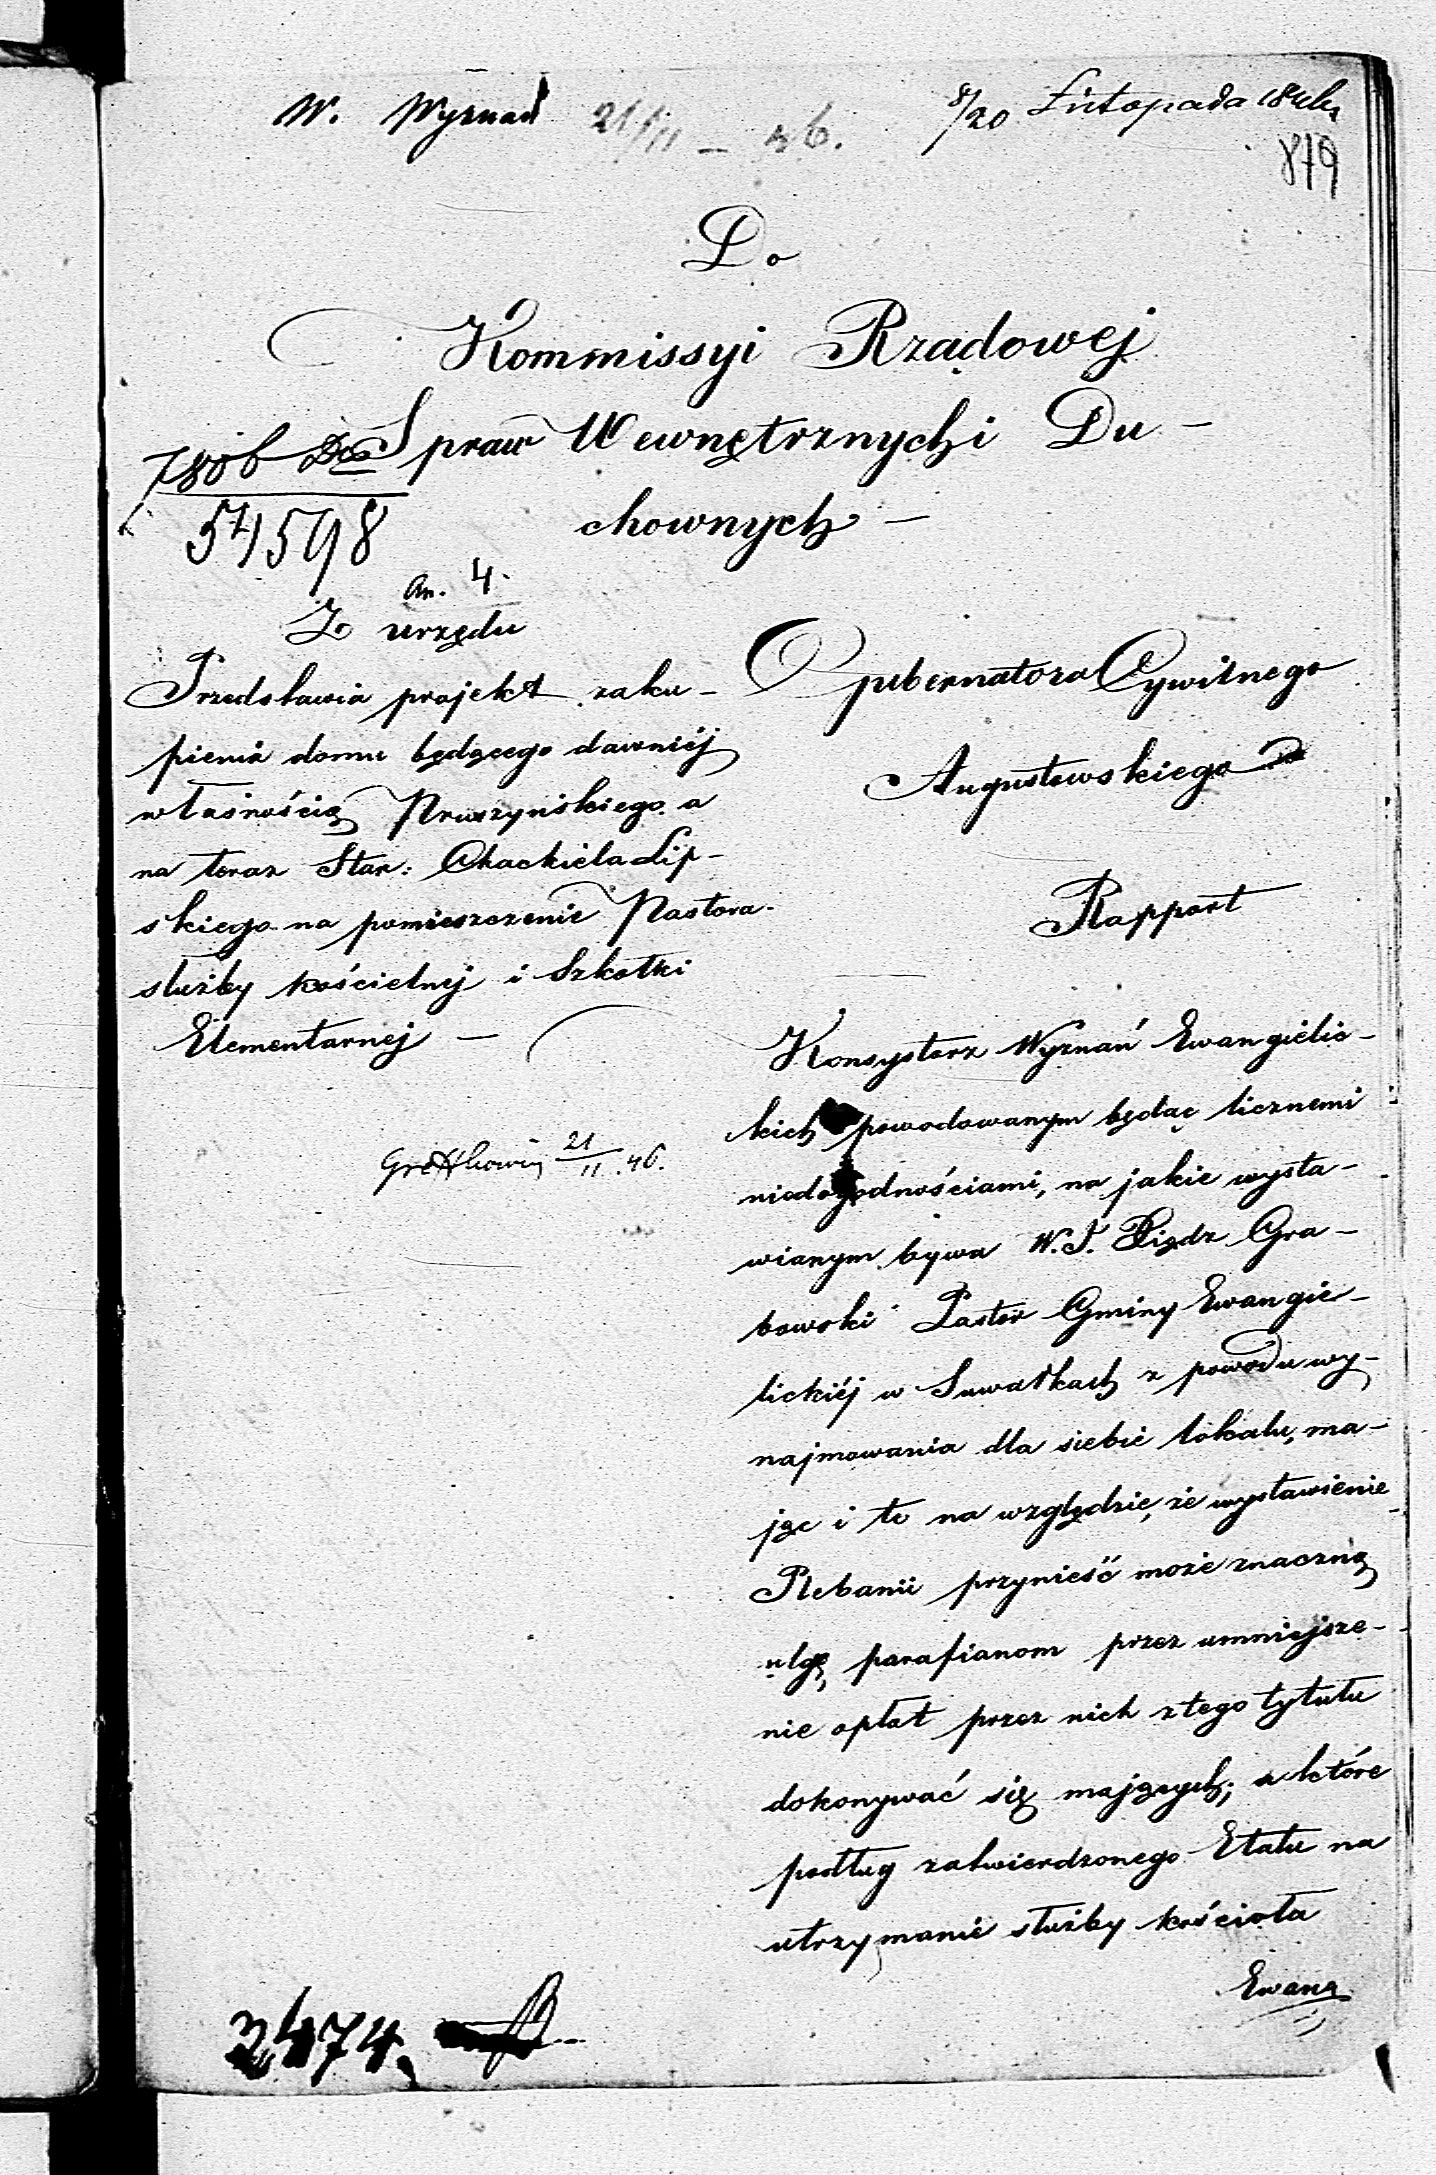 W. Wyznań 21/11 – 46.
8/20 Listopada 184
879
Do
Kommissyi Rządowej
Spraw Wewnętrznych i Du-
chownych –
7806
54598
An. 4.
Z urzędu
Przedstawia projekt zaku-
pienia domu będącego dawniéj
własnością Pruszyńskiego a
na teraz Star: Chackiela Lip-
skiego na pomieszczenie Pastora
służby kościelnej i Szkołki
Elementarnej –
21/11 46.
Gubernatora Cywilnego
Augustowskiego
Rapport
Konsystorz Wyznań Ewangielic-
kich powodowanym będąc licznemi
niedogodnościami, na jakie wysta-
wianym bywa W. J. Xiądz Gra-
bowski Pastor Gminy Ewangie-
lickiéj w Suwałkach z powodu wy-
najmowania dla siebie lokalu, ma-
jąc i to na względzie, że wystawienie
Plebanii przynieść może znaczną
ulgę parafianom przez umniejsze-
nie opłat przez nich z tego tytułu
dokonywać się mających; a które
podług zatwierdzonego Etatu na
utrzymanie służby kościoła
Ewang
2474.